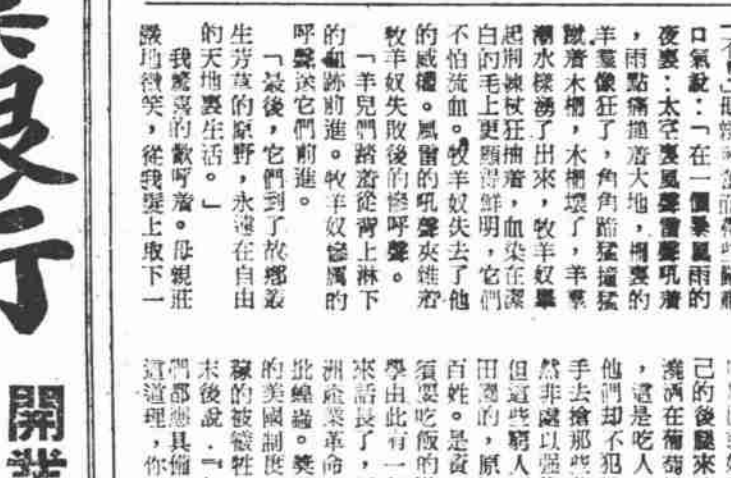 口氣說：「在一個暴風雨的
夜裏：太空裏風聲雷聲吼着
，雨點痛撞着大地，柵裏的
羊羣像狂了，角角蹄猛撞猛
蹴着木柵，木柵壞了，羊羣
潮水樣湧了出來，牧羊奴舉
起荆棘杖狂抽着，血染在潔
白的毛上更顯得鮮明，它們
不怕流血。牧羊奴失去了他
的威權。風雷的吼聲夾雜着
牧羊奴失敗後的慘呼聲。
「羊兒們踏着從背上淋下
的血跡前進。牧羊奴慘厲的
呼聲送它們前進。
「最後，它們到了故鄉叢
生芳草的原野，永遠在自由
的天地裏生活。」
我驚喜的歡呼着。母親莊
嚴地微笑，從我髮上取下一
己的後腿來
澆洒在葡萄
，這是吃人
他們却不犯
手去搶那些
然非處以强
但這些窮人
田園的，原
百姓。是資
須要吃飯的
學由此有一
來話長了，
洲產業革命
批蝗蟲。獎
的美國制度
穢的被犧牲
末後說：『
們都應具備
這道理，你
銀行
開業